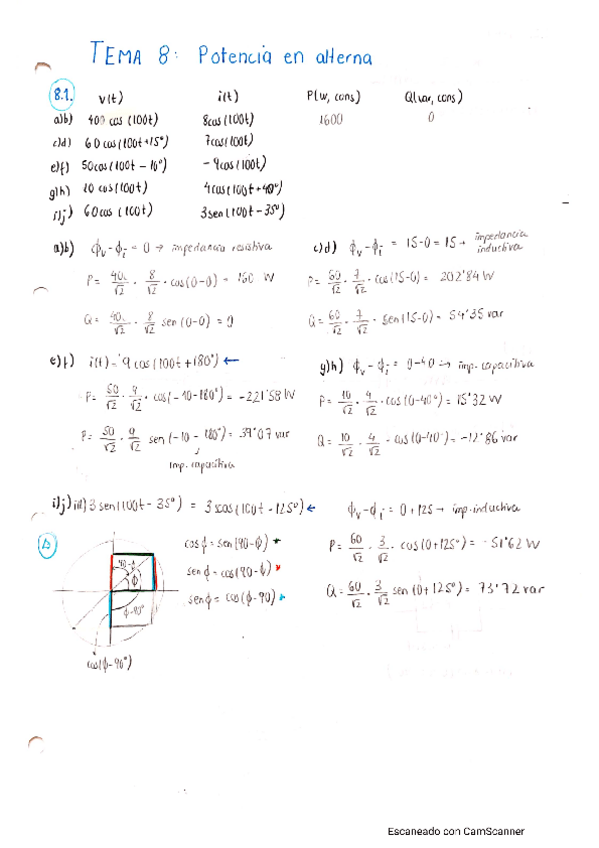 TEMA 8: Potencia en alterna
8.1. v(t) i(t) P(W, cons) Q(var, cons)
a)b) 400 cos (100t) 8cos(100t) 1600 0
c)d) 60 cos(100t+15°) 7cos(100t)
e)f) 50cos(100t - 10°) - 9cos(100t)
g)h) 10 cos(100t) 4cos(100t+40°)
i)j) 60cos (100t) 3sen(100t-35°)
a)b) ϕv-ϕi = 0 → impedancia resistiva
P= 400/√2 · 8/√2 · cos(0-0) = 160 W
Q= 400/√2 · 8/√2 sen (0-0) = 0
c)d) ϕv-ϕi = 15-0 = 15 → impedancia inductiva
P= 60/√2 · 7/√2 · cos(15-0) = 202'84 W
Q= 60/√2 · 7/√2 · sen(15-0) = 54'35 var
e)f) i(t) = 9 cos(100t+180°) ←
P= 50/√2 · 9/√2 · cos(-10-180°) = -221'58 W
P= 50/√2 · 9/√2 sen (-10 - 180°) = 39'07 var
imp. capacitiva
g)h) ϕv-ϕi = 0-40 → imp. capacitiva
P= 10/√2 · 4/√2 · cos(0-40°) = 15'32 W
Q= 10/√2 · 4/√2 · cos(0-40°) = -12'86 var
i)j) 3 sen(100t - 35°) = 3 cos(100t - 125°) ←
ϕv-ϕi = 0+125 → imp. inductiva
P= 60/√2 · 3/√2 · cos(0+125°) = -51'62 W
Q= 60/√2 · 3/√2 sen (0+125°) = 73'72 var
cosϕ = sen(90-ϕ)
senϕ = cos(90-ϕ)
senϕ = cos(ϕ-90)
90-ϕ
ϕ
ϕ-90°
cos(ϕ-90°)
Escaneado con CamScanner